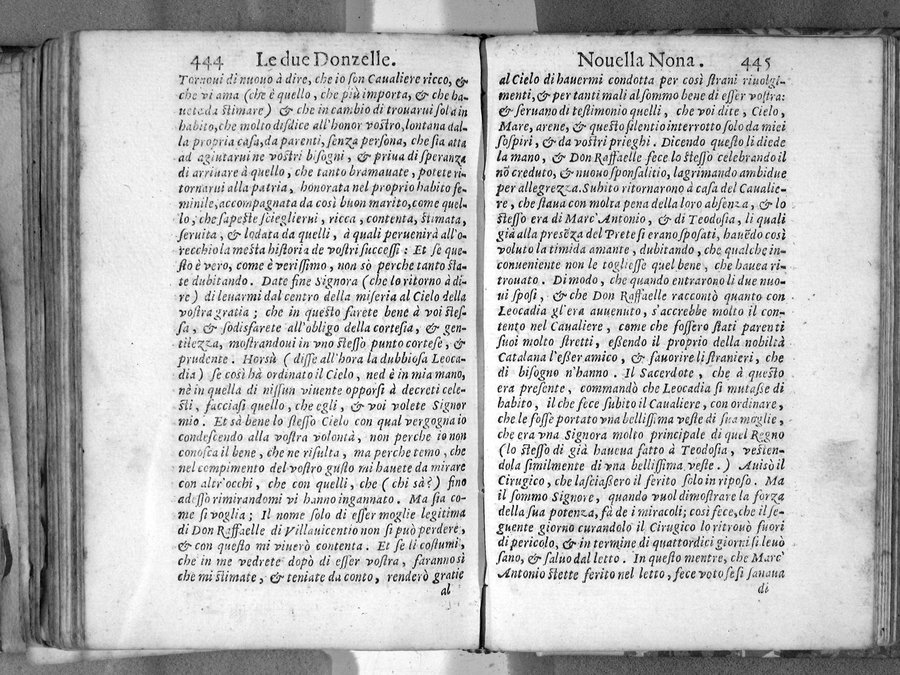 444 Le due Donzelle.
Tornoui di nuouo à dire, che io son Caualiere ricco, &
che vi ama (che è quello, che più importa, & che ha-
uete da stimare) & che in cambio di trouarui sola in
habito, che molto disdice all'honor vostro, lontana dal-
la propria casa, da parenti, senza persona, che sia atta
ad agiutarui ne vostri bisogni, & priua di speranza
di arriuare à quello, che tanto bramauate, potete ri-
tornarui alla patria, honorata nel proprio habito fe-
minile, accompagnata da così buon marito, come quel-
lo, che sapeste scieglierui, ricca, contenta, stimata,
seruita, & lodata da quelli, à quali peruenirà all'o-
recchio la mesta historia de vostri successi: Et se que-
sto è vero, come è verissimo, non sò perche tanto sta-
te dubitando. Date fine Signora (che lo ritorno à di-
re) di leuarmi dal centro della miseria al Cielo della
vostra gratia; che in questo farete bene à voi stes-
sa, & sodisfarete all'obligo della cortesia, & gen-
tilezza, mostrandoui in vno stesso punto cortese, &
prudente. Horsù (disse all'hora la dubbiosa Leoca-
dia) se così hà ordinato il Cielo, ned è in mia mano,
nè in quella di nissun viuente opporsi à decreti cele-
sti, facciasi quello, che egli, & voi volete Signor
mio. Et sà bene lo stesso Cielo con qual vergogna io
condescendo alla vostra volontà, non perche io non
conosca il bene, che ne risulta, ma perche temo, che
nel compimento del vostro gusto mi hauete da mirare
con altr'occhi, che con quelli, che (chi sà?) fino
adesso rimirandomi vi hanno ingannato. Ma sia co-
me si voglia; Il nome solo di esser moglie legitima
di Don Raffaelle di Villauicentio non si può perdere,
& con questo mi viuerò contenta. Et se li costumi,
che in me vedrete dopò di esser vostra, faranno sì
che mi stimate, & teniate da conto, renderò gratie
al
Nouella Nona. 445
al Cielo di hauermi condotta per così strani riuolgi-
menti, & per tanti mali al sommo bene di esser vostra:
& seruano di testimonio quelli, che voi dite, Cielo,
Mare, arene, & questo silentio interrotto solo da miei
sospiri, & da vostri prieghi. Dicendo questo li diede
la mano, & Don Raffaelle fece lo stesso celebrando il
nō creduto, & nuouo sponsalitio, lagrimando ambidue
per allegrezza. Subito ritornarono à casa del Caualie-
re, che staua con molta pena della loro absenza, & lo
stesso era di Marc' Antonio, & di Teodosia, li quali
già alla presēza del Prete si erano sposati, hauēdo così
voluto la timida amante, dubitando, che qualche in-
conueniente non le togliesse quel bene, che hauea ri-
trouato. Di modo, che quando entrarono li due nuo-
ui sposi, & che Don Raffaelle raccontò quanto con
Leocadia gl'era auuenuto, s'accrebbe molto il con-
tento nel Caualiere, come che fossero stati parenti
suoi molto stretti, essendo il proprio della nobiltà
Catalana l'esser amico, & fauorire li stranieri, che
di bisogno n'hanno. Il Sacerdote, che à questo
era presente, commandò che Leocadia si mutasse di
habito, il che fece subito il Caualiere, con ordinare,
che le fosse portato vna bellissima veste di sua moglie,
che era vna Signora molto principale di quel Regno
(lo stesso di già haueua fatto à Teodosia, vesten-
dola similmente di vna bellissima veste.) Auisò il
Cirugico, che lasciassero il ferito solo in riposo. Ma
il sommo Signore, quando vuol dimostrare la forza
della sua potenza, fà de i miracoli; così fece, che il se-
guente giorno curandolo il Cirugico lo ritrouò fuori
di pericolo, & in termine di quattordici giorni si leuò
sano, & saluo dal letto. In questo mentre, che Marc'
Antonio stette ferito nel letto, fece voto se si sanaua
di